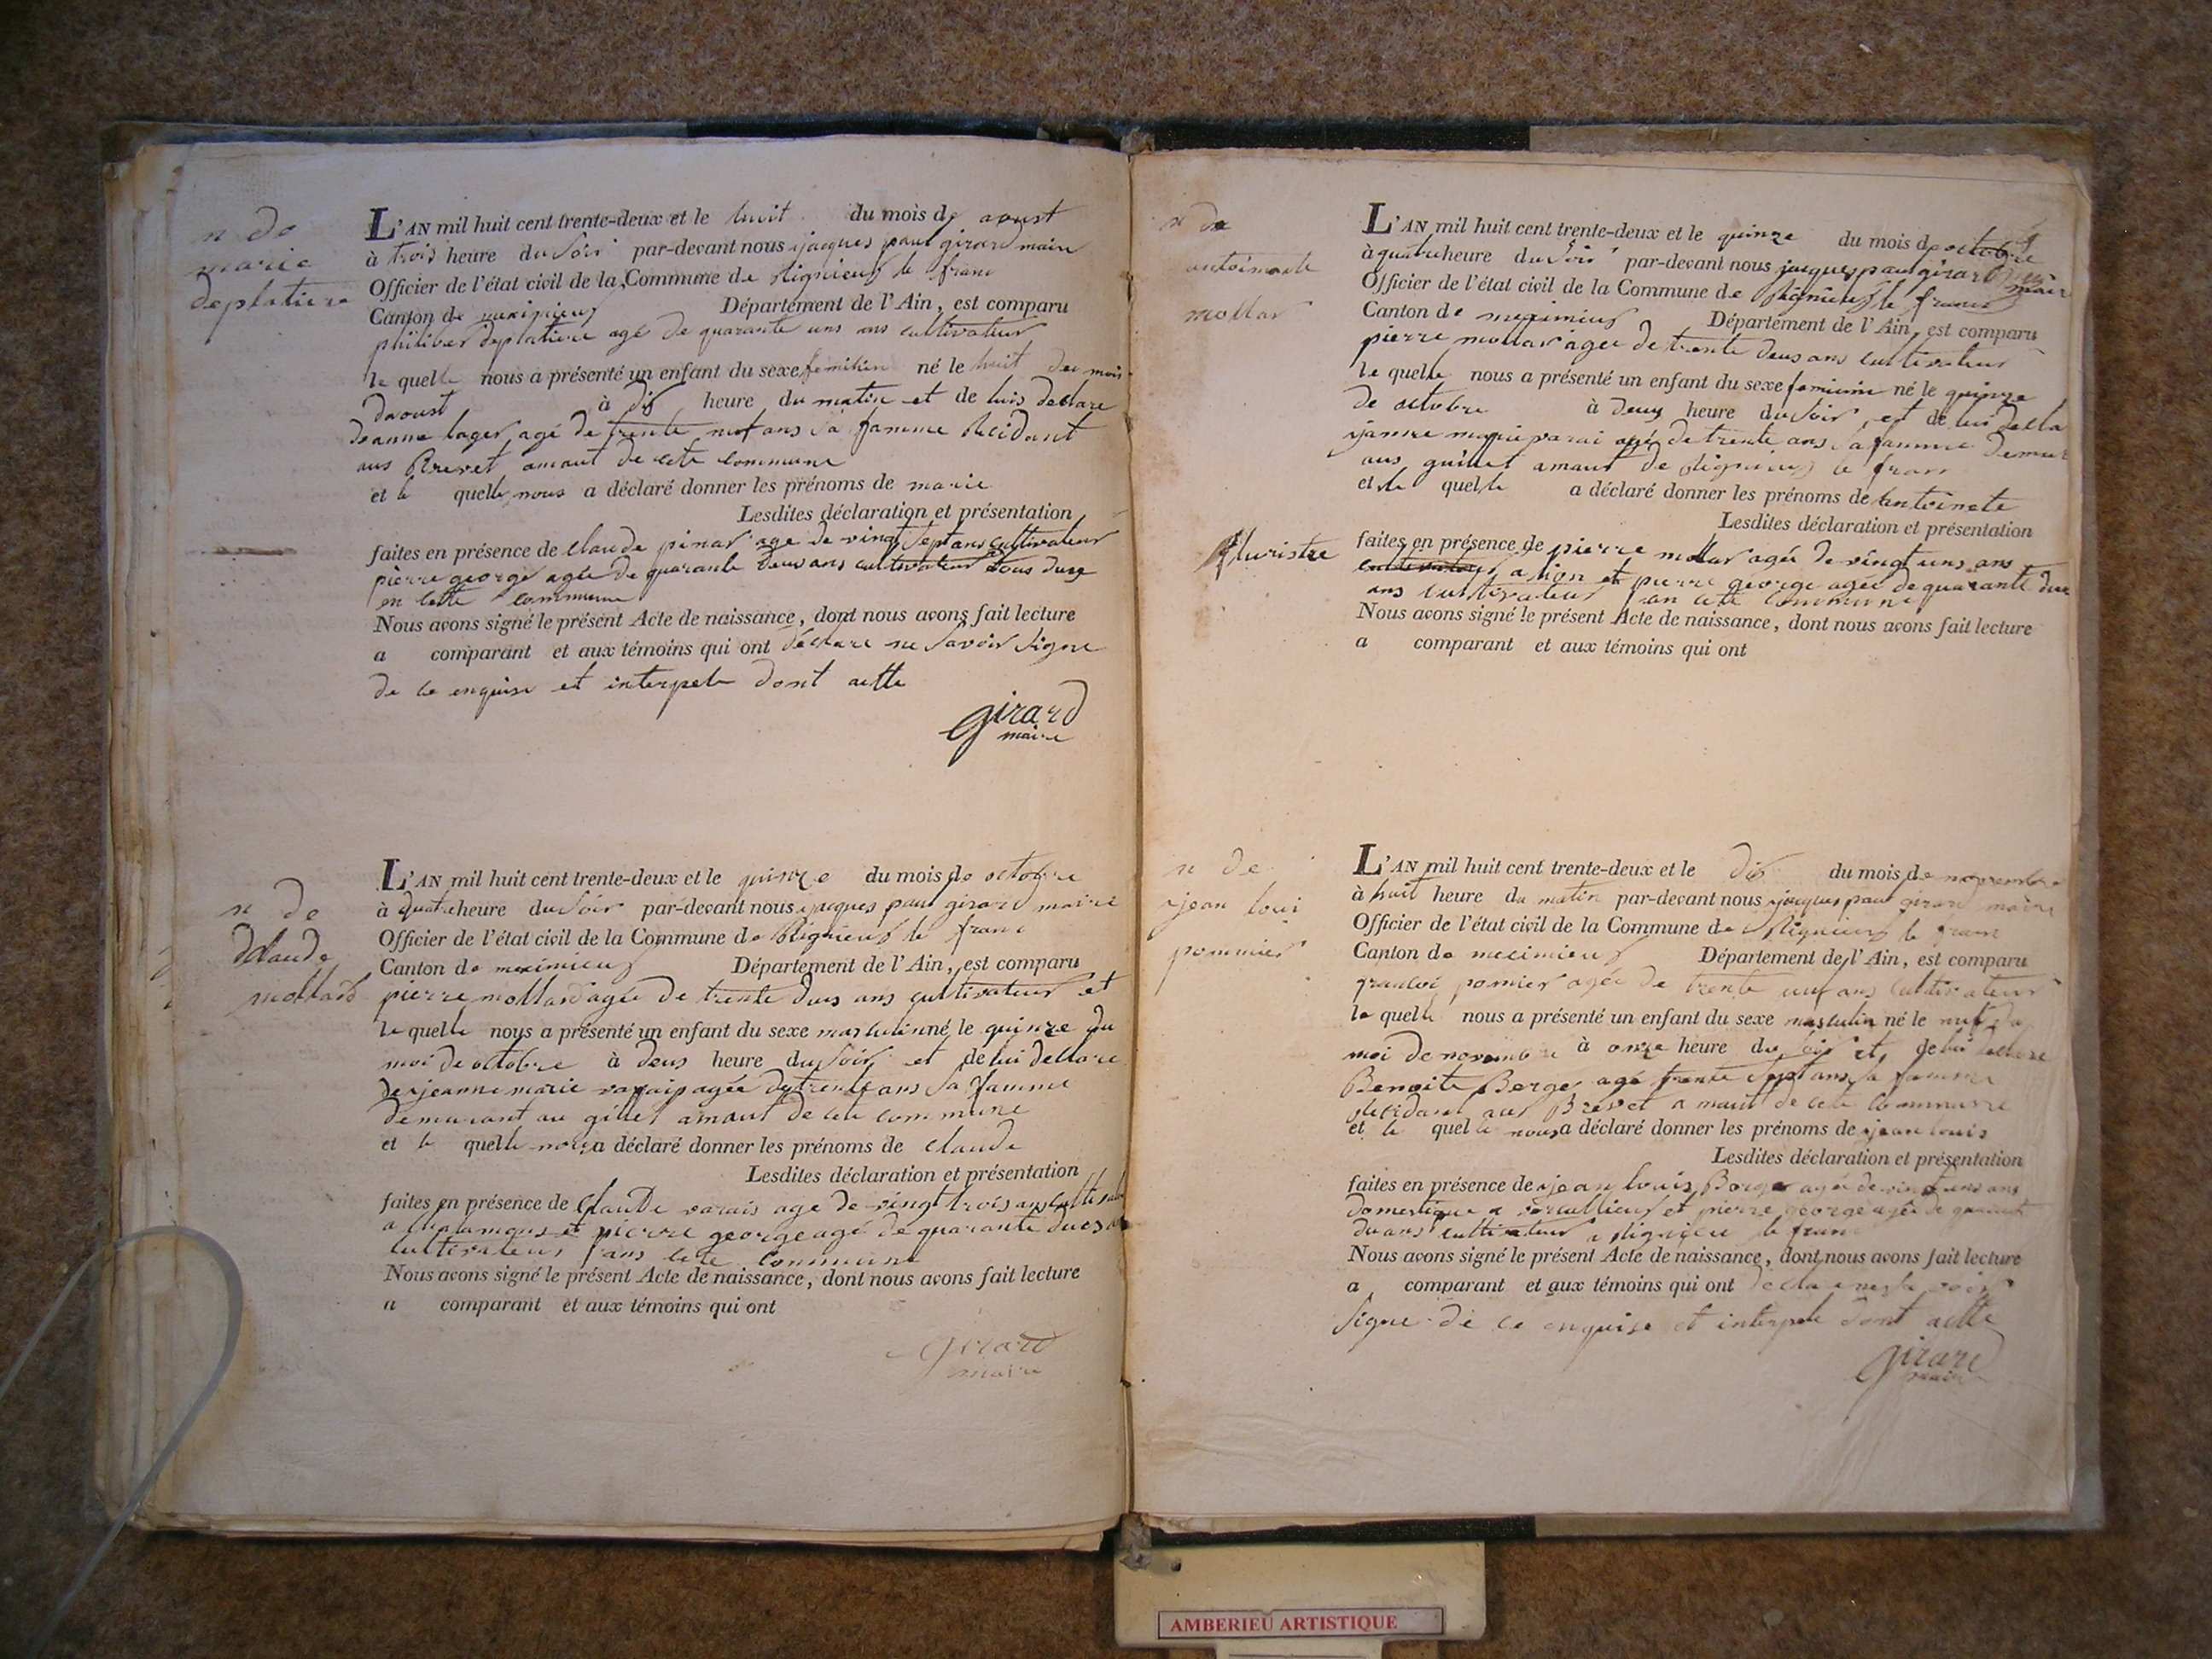 n de
marie
deplatiere
L'AN mil huit cent trente-deux et le huit du mois de aoust
à trois heure du soir par-devant nous jacques paul girard maire
Officier de l'état civil de la Commune de rignieux le franc
Canton de meximieux Département de l'Ain, est comparu
philiber deplatiere agé de quarante uns ans cultivateur
le quelle nous a présenté un enfant du sexe feminin né le huit du mois
daoust à dix heure du matin et de luis declare
deanne lager agé de trente neuf ans sa famme Residant
aus Brevet amaut de cete commune
et le quelle nous a déclaré donner les prénoms de marie
Lesdites déclaration et présentation
faites en présence de claude pinar age de vingt sept ans cultivateur
pierre george agée de quarante deus ans cultivateur tous duse
en cette commune
Nous avons signé le présent Acte de naissance, dont nous avons fait lecture
a comparant et aux témoins qui ont declare ne savoir signe
de ce enquise et interpele dont acte
girard
maire
n de
Claude
mollard
L'AN mil huit cent trente-deux et le quinze du mois de octobre
à quatre heure du soir par-devant nous jacques paul girard maire
Officier de l'état civil de la Commune de Rignieux le franc
Canton de meximieux Département de l'Ain, est comparu
pierre mollard agée de trente dus ans cultivateur et
le quelle nous a présenté un enfant du sexe masculin né le quinze du
moi de octobre à deus heure du soir et de lui dellare
de jeanne marie varai agée de trente ans sa famme
demurant au gillet amaut de cete commune
et le quelle nous a déclaré donner les prénoms de claude
Lesdites déclaration et présentation
faites en présence de Claude varais age de vingt trois ans
a et pierre george agé de quarante dues
cultivateur dans cete commune
Nous avons signé le présent Acte de naissance, dont nous avons fait lecture
a comparant et aux témoins qui ont
girard
maire
n de
antoinaite
mollar
L'AN mil huit cent trente-deux et le quinze du mois de octobre
à quatre heure du soir par-devant nous jacques paul girard maire
Officier de l'état civil de la Commune de Rignieux le franc
Canton de meximieux Département de l'Ain, est comparu
pierre mollar agée de trente deus ans cultivateur
le quelle nous a présenté un enfant du sexe feminin né le quinze
de octobre à deus heure du soir et de lui della
janne marie varai agé de trente ans sa famme demur
aus guillet amaut de rignieux le fran
et le quelle a déclaré donner les prénoms de antoinete
Lesdites déclaration et présentation
fluristre
faites en présence de pierre mollar agée de vingt uns ans
cultivateur a lion et pierre george agée de quarante due
ans cultivateur en cete commune
Nous avons signé le présent Acte de naissance, dont nous avons fait lecture
a comparant et aux témoins qui ont
n de
jean loui
pommier
L'AN mil huit cent trente-deux et le dix du mois de novembre
à huit heure du matin par-devant nous jacques paul girard maire
Officier de l'état civil de la Commune de Rignieux le franc
Canton de meximieux Département de l'Ain, est comparu
francoi pomier agée de trente ans cultivateur
le quelle nous a présenté un enfant du sexe masculin né le neuf du
moi de novembre à onze heure du soir et de lui dellare
Benoite Berger agé trente sept ans sa famme
Residant aus Brevet amaut de cete commune
et le quelle nous a déclaré donner les prénoms de jean louis
Lesdites déclaration et présentation
faites en présence de jean louis Berger agée de vint uns ans
domestique a et pierre george agée de quarante
du ans cultivateur a Rignieu le franc
Nous avons signé le présent Acte de naissance, dont nous avons fait lecture
a comparant et aux témoins qui ont declare ne savoir
signe de ce enquise et interpele dont acte
girard
maire
AMBERIEU ARTISTIQUE